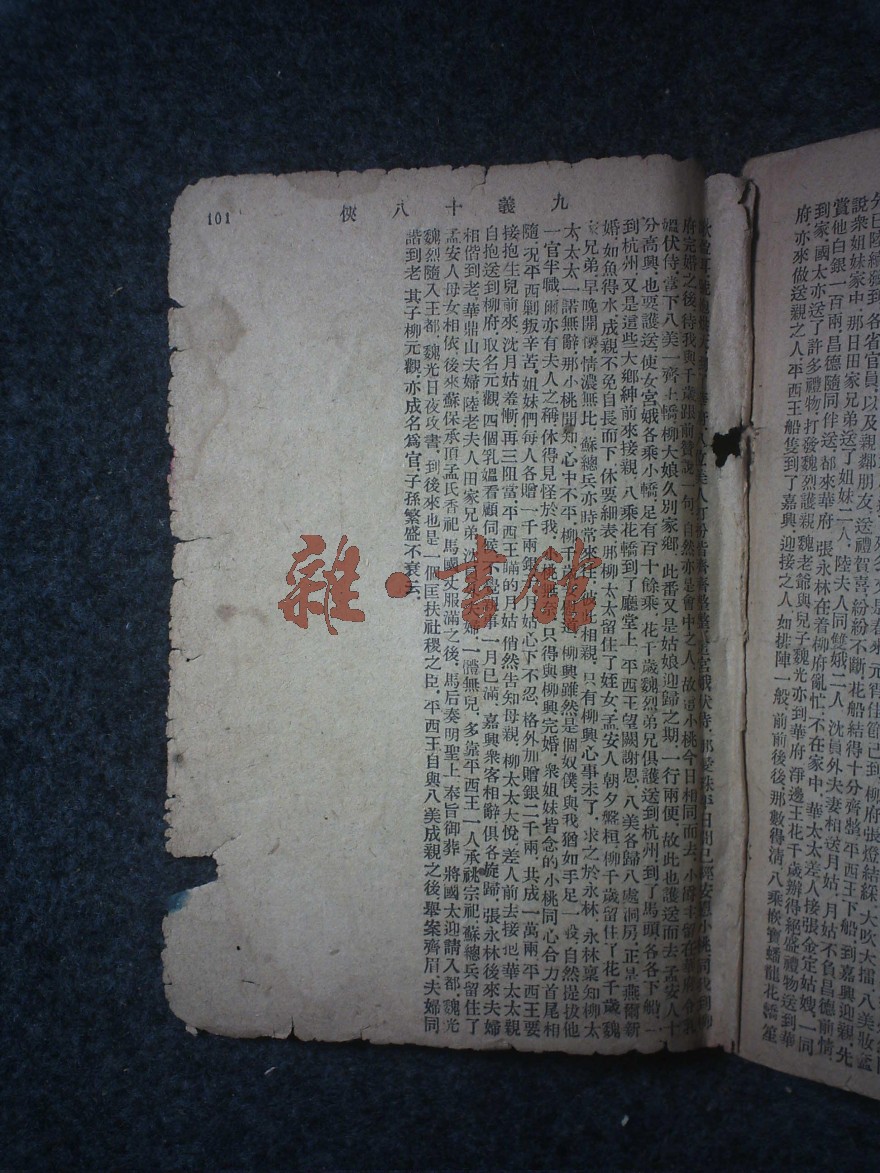 到家國太亦送了許多禮物打發魏烈護親魏老爺與兒子魏光亦到華府淨邊王花千歲辦得絕盛禮物送到華
府亦來做送親之人平西王船隻到了嘉興迎接之人如排陣一般前前後後那數得清八乘嵌寶蟠龍花轎笙
九義十八俠
101
府完婚之後待我與千歲跟前贊說一句自然亦是會中之人故
媼伏侍當下八美一齊上轎柳大娘久別家鄉此番又是姑娘迎歸之期一行兩便故此也護送而去孟安人十
分高興也要護送使女宮娥各乘小轎足有百十餘乘花千歲魏烈弟兄俱護送到杭州到了馬頭各各下船
到杭州又是這些大鄉紳前來接親八乘花轎到了廳堂上平西王望闕謝恩八美各歸八處洞房正是燕爾新
婚如魚得水成親不免自長而下休要細表那柳太太留住了姪女孟安人朝夕盤桓柳千歲留住了花千歲魏
家兄弟早晚開懷情濃無比蘇總兵亦時常來往彼此相親只有柳興心事未了求之於永林永林稟知柳太
太太太一諾無辭那小桃聞知心中不平柳千歲道柳興雖然是個奴僕與我猶如手足一般自然提拔他
一官半職爾亦有夫人之稱休得見怪於我小桃無奈只得與柳興完婚衆姐妹皆念的小桃同心合力首尾相
隨況平西剿叛辛苦姐妹們每人各贈一千兩銀月姑心下不忍格外加贈銀二千兩共成一萬兩平西王要
接抱生兒前來沈月姑羞慚再三阻當平西王瞞的月姑悄然告知母親柳太太大悅差人前去接他華太太親
自抱送到柳府取名元觀四個乳媼看顧伺候不覺事一月已滿嘉興衆客相辭俱各旋歸張永林後來夫婦
相偕到老華鼎山夫婦陸老夫人田家兄弟沈夫婦一體無兒多靠平西王一人承祧宗祀蘇總兵留住了
孟安人母女相依後來蘇保承頂孟氏香祀馬國丈服滿之後馬后奏明聖上奉旨御葬將國太迎請入都魏光
魏烈隨入王都魏光日夜攻書到後來也是一個匡扶社稷之臣平西王自與八美成親之後舉案齊眉夫婦同
諧到老其子柳元觀亦成名爲官子孫繁盛不衰云
雜·書館